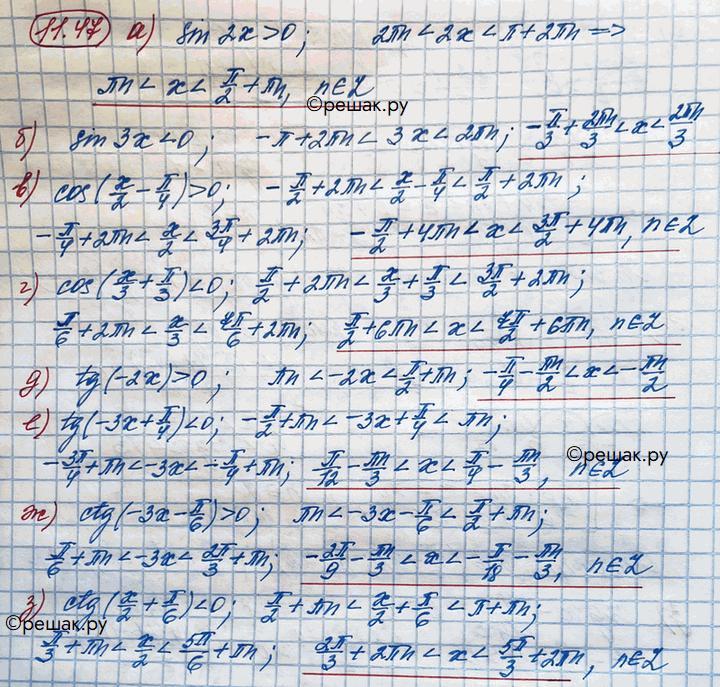 11.47 а) sin 2x>0; 2πn<2x<π+2πn =>
πn < x < π/2+πn, n∈Z
©решак.ру
б) sin 3x<0; -π+2πn<3x<2πn; -π/3+2πn/3<x<2πn/3
в) cos(x/2-π/4)>0; -π/2+2πn<x/2-π/4<π/2+2πn;
-π/4+2πn<x/2<3π/4+2πn; -π/2+4πn<x<3π/2+4πn, n∈Z
г) cos(x/3+π/3)<0; π/2+2πn<x/3+π/3<3π/2+2πn;
π/6+2πn<x/3<7π/6+2πn; π/2+6πn<x<7π/2+6πn, n∈Z
д) tg(-2x)>0; πn<-2x<π/2+πn; -π/4-πn/2<x<-πn/2
е) tg(-3x+π/4)<0; -π/2+πn<-3x+π/4<πn;
-3π/4+πn<-3x<-π/4+πn; π/12-πn/3<x<π/4-πn/3, n∈Z
©решак.ру
ж) ctg(-3x-π/6)>0; πn<-3x-π/6<π/2+πn;
π/6+πn<-3x<2π/3+πn; -2π/9-πn/3<x<-π/18-πn/3, n∈Z
з) ctg(x/2+π/6)<0; π/2+πn<x/2+π/6<π+πn;
©решак.ру
π/3+πn<x/2<5π/6+πn; 2π/3+2πn<x<5π/3+2πn, n∈Z